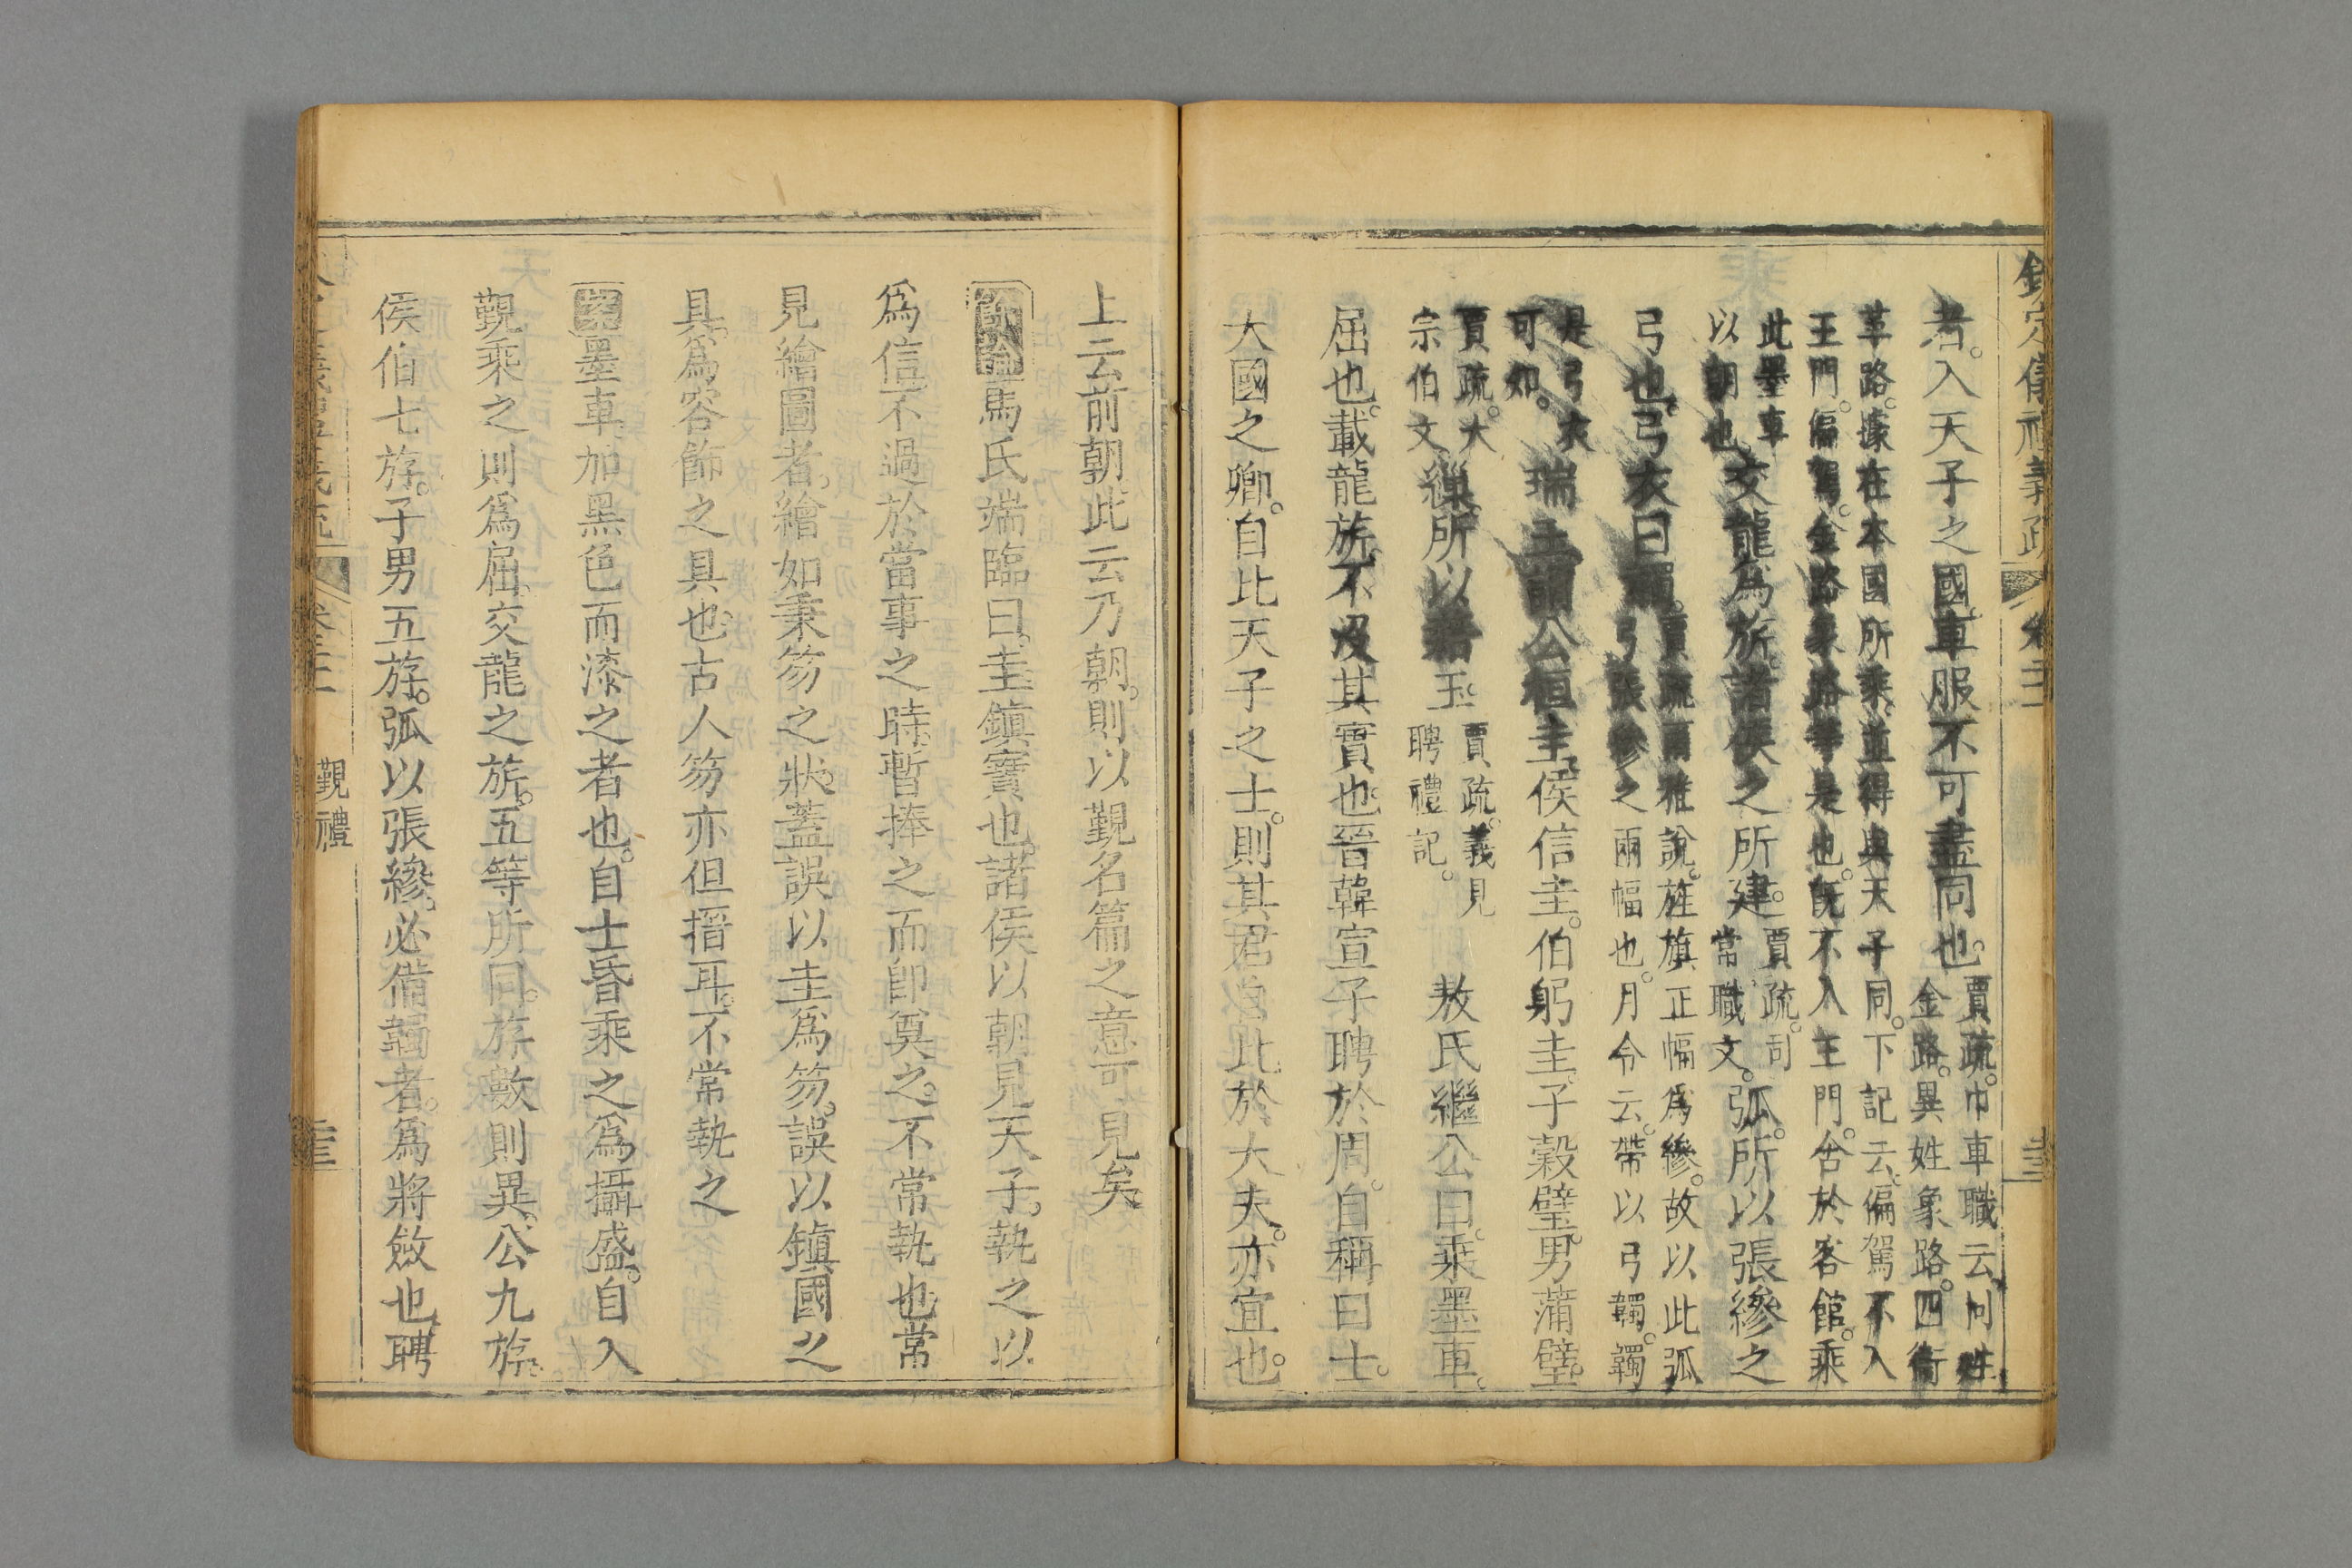 欽定儀禮義疏 卷
者。入天子之國。車服不可盡同也。賈疏。巾車職云。同姓
金路。異姓象路。四衛
革路。據在本國所乘。並得與天子同。下記云。偏駕不入
王門。偏駕。金路象路等是也。旣不入王門。舍於客館。乘
此墨車
以朝也。交龍爲旂。諸侯之所建。賈疏。司
常職文。弧。所以張縿之
弓也。弓衣曰韣。賈疏。爾雅說旌旗正幅爲縿。故以此弧
弓張縿之兩幅也。月令云。帶以弓韣。韣
是弓衣
可知。瑞玉。謂公桓圭。侯信圭。伯躬圭。子穀璧。男蒲璧。
賈疏。大
宗伯文。繅。所以藉玉。賈疏。義見
聘禮記。 敖氏繼公曰。乘墨車。
屈也。載龍旂。不沒其實也。晉韓宣子聘於周。自稱曰士。
大國之卿。自比天子之士。則其君自比於大夫。亦宜也。
上云前朝。此云乃朝。則以覲名篇之意可見矣。
餘論馬氏端臨曰。圭。鎭寶也。諸侯以朝見天子。執之以
爲信。不過於當事之時。暫捧之而卽奠之。不常執也。常
見繪圖者。繪如秉笏之狀。蓋誤以圭爲笏。誤以鎭國之
具。爲容飾之具也。古人笏亦但搢耳。不常執之
案墨車。加黑色而漆之者也。自士昏乘之爲攝盛。自入
覲乘之則爲屈。交龍之旂。五等所同。斿數則異。公九斿。
侯伯七斿。子男五斿。弧以張縿。必備韣者。爲將斂也。聘
覲禮